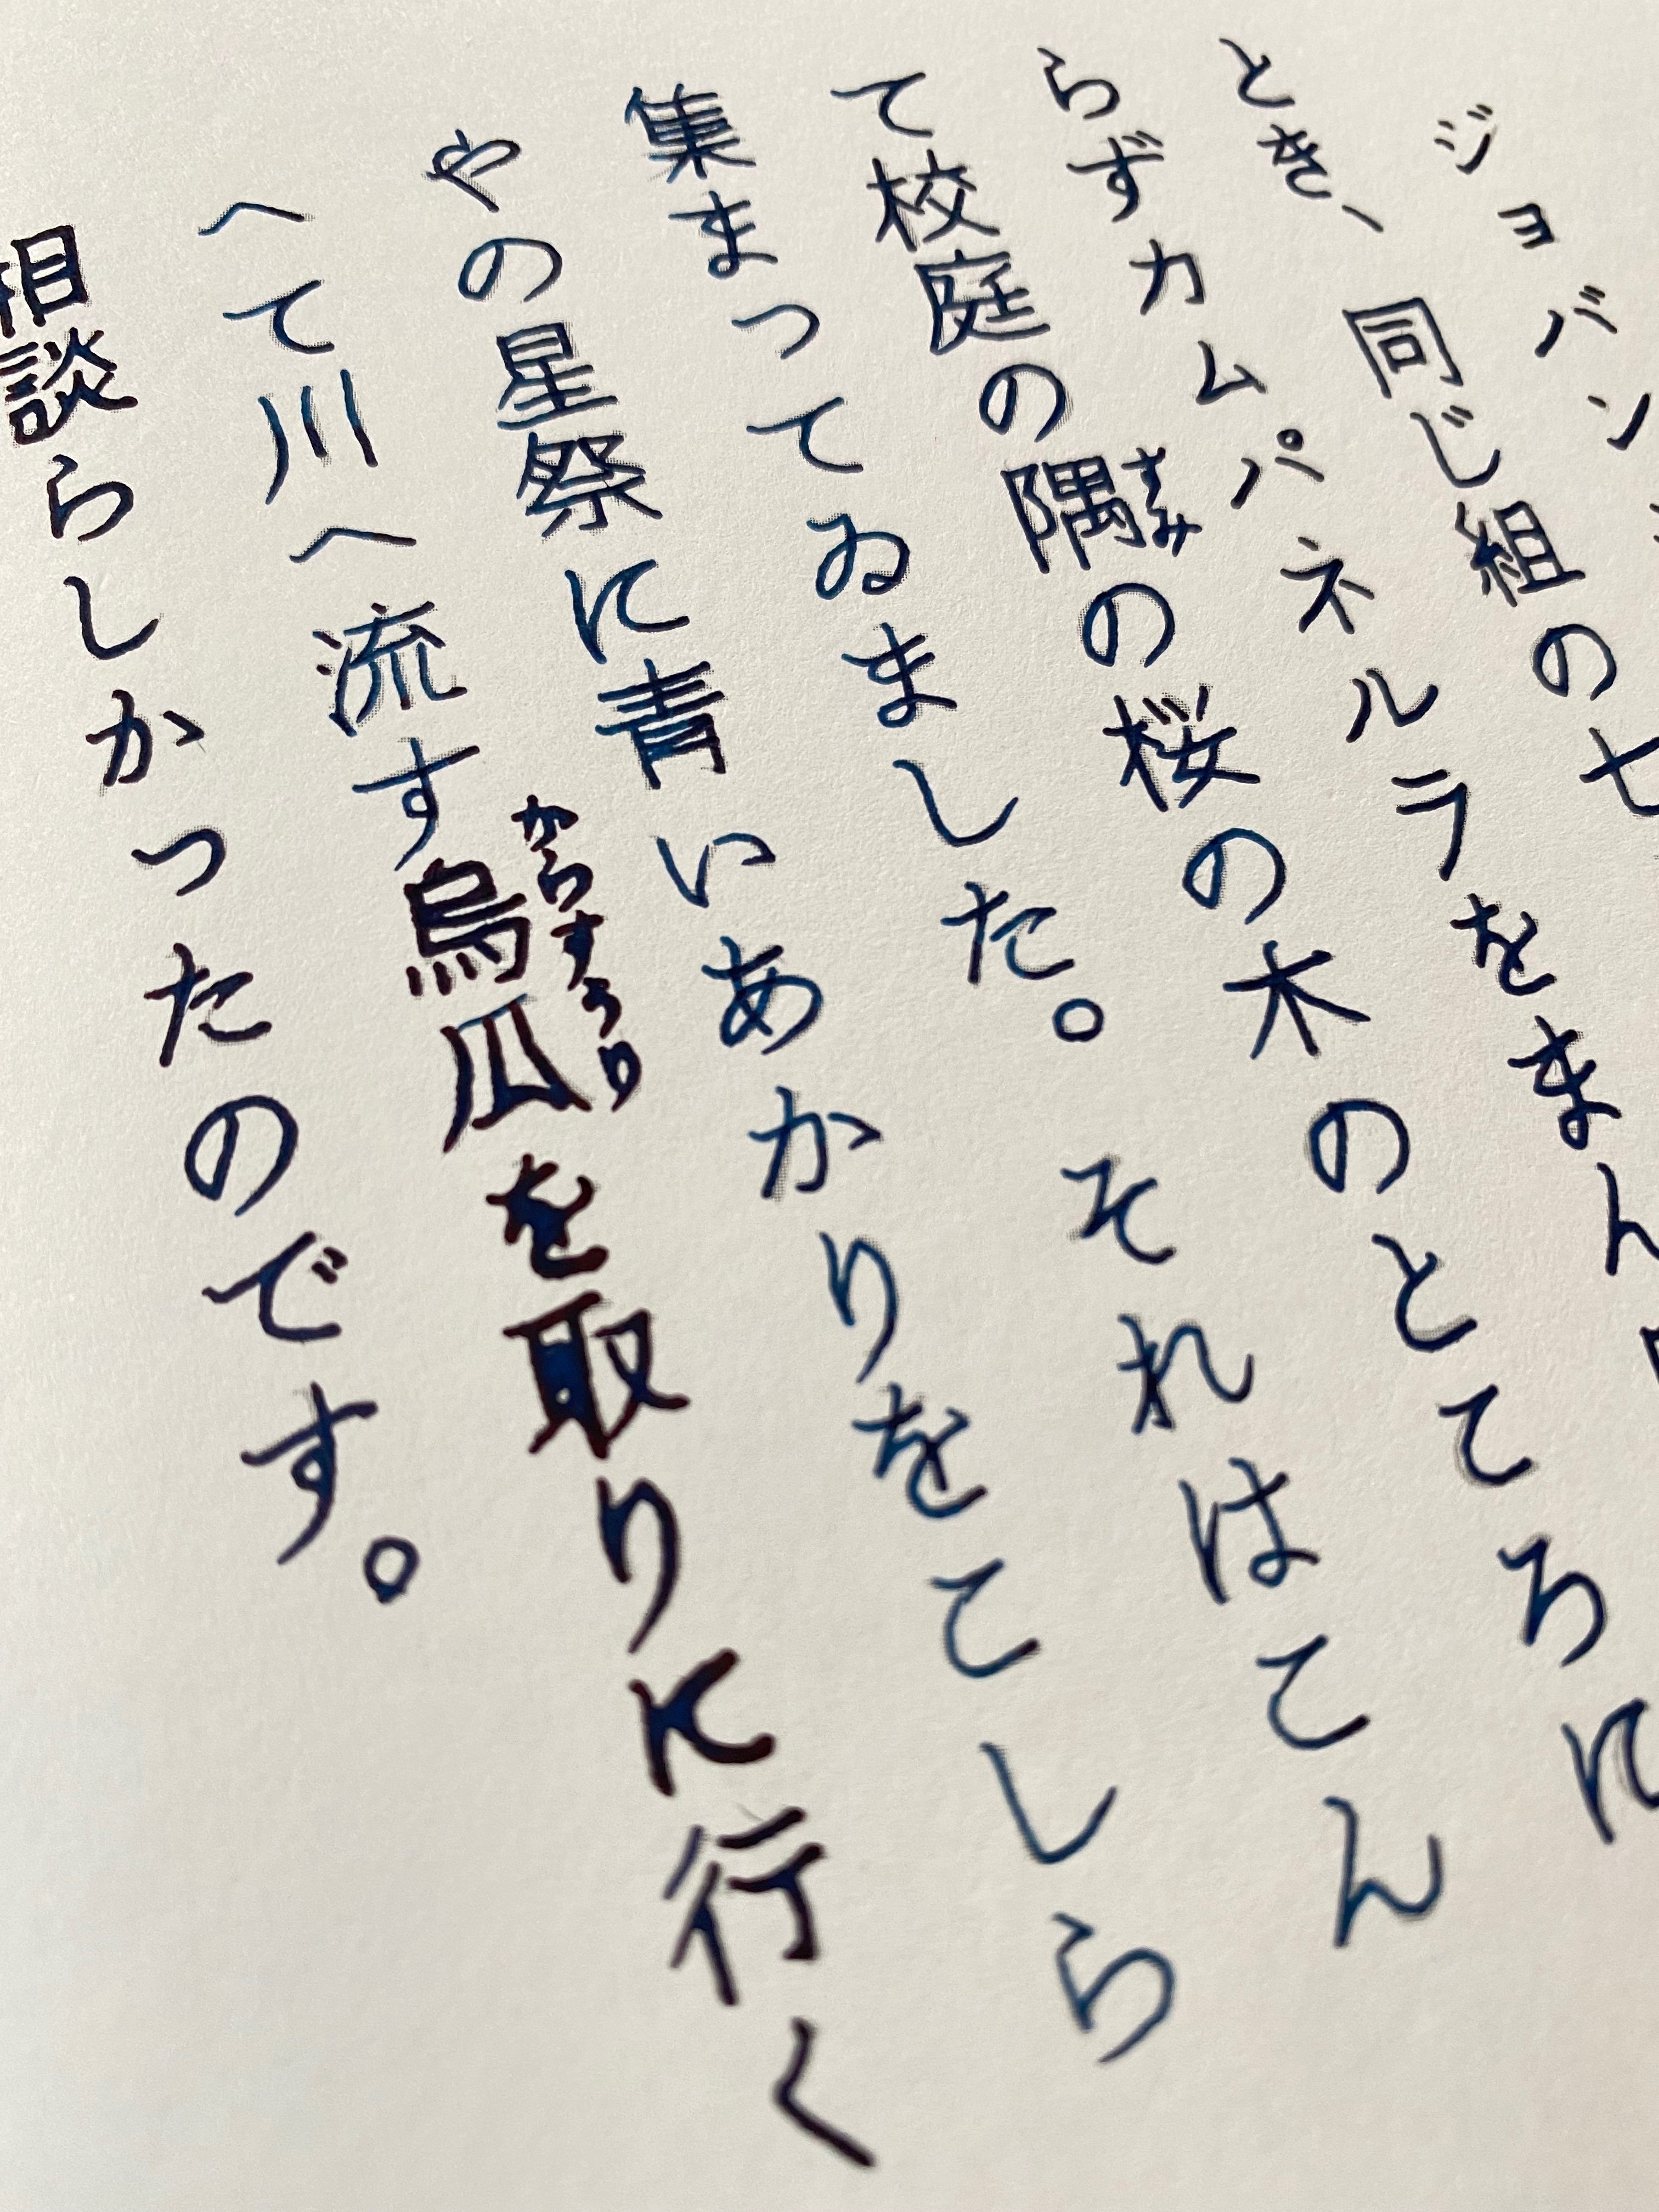 ジョバン
とき、同じ組の七
らずカムパネルラをまん
て校庭の隅の桜の木のところに
集まってゐました。それはこん
やの星祭に青いあかりをこしら
へて川へ流す烏瓜を取りに行く
相談らしかったのです。